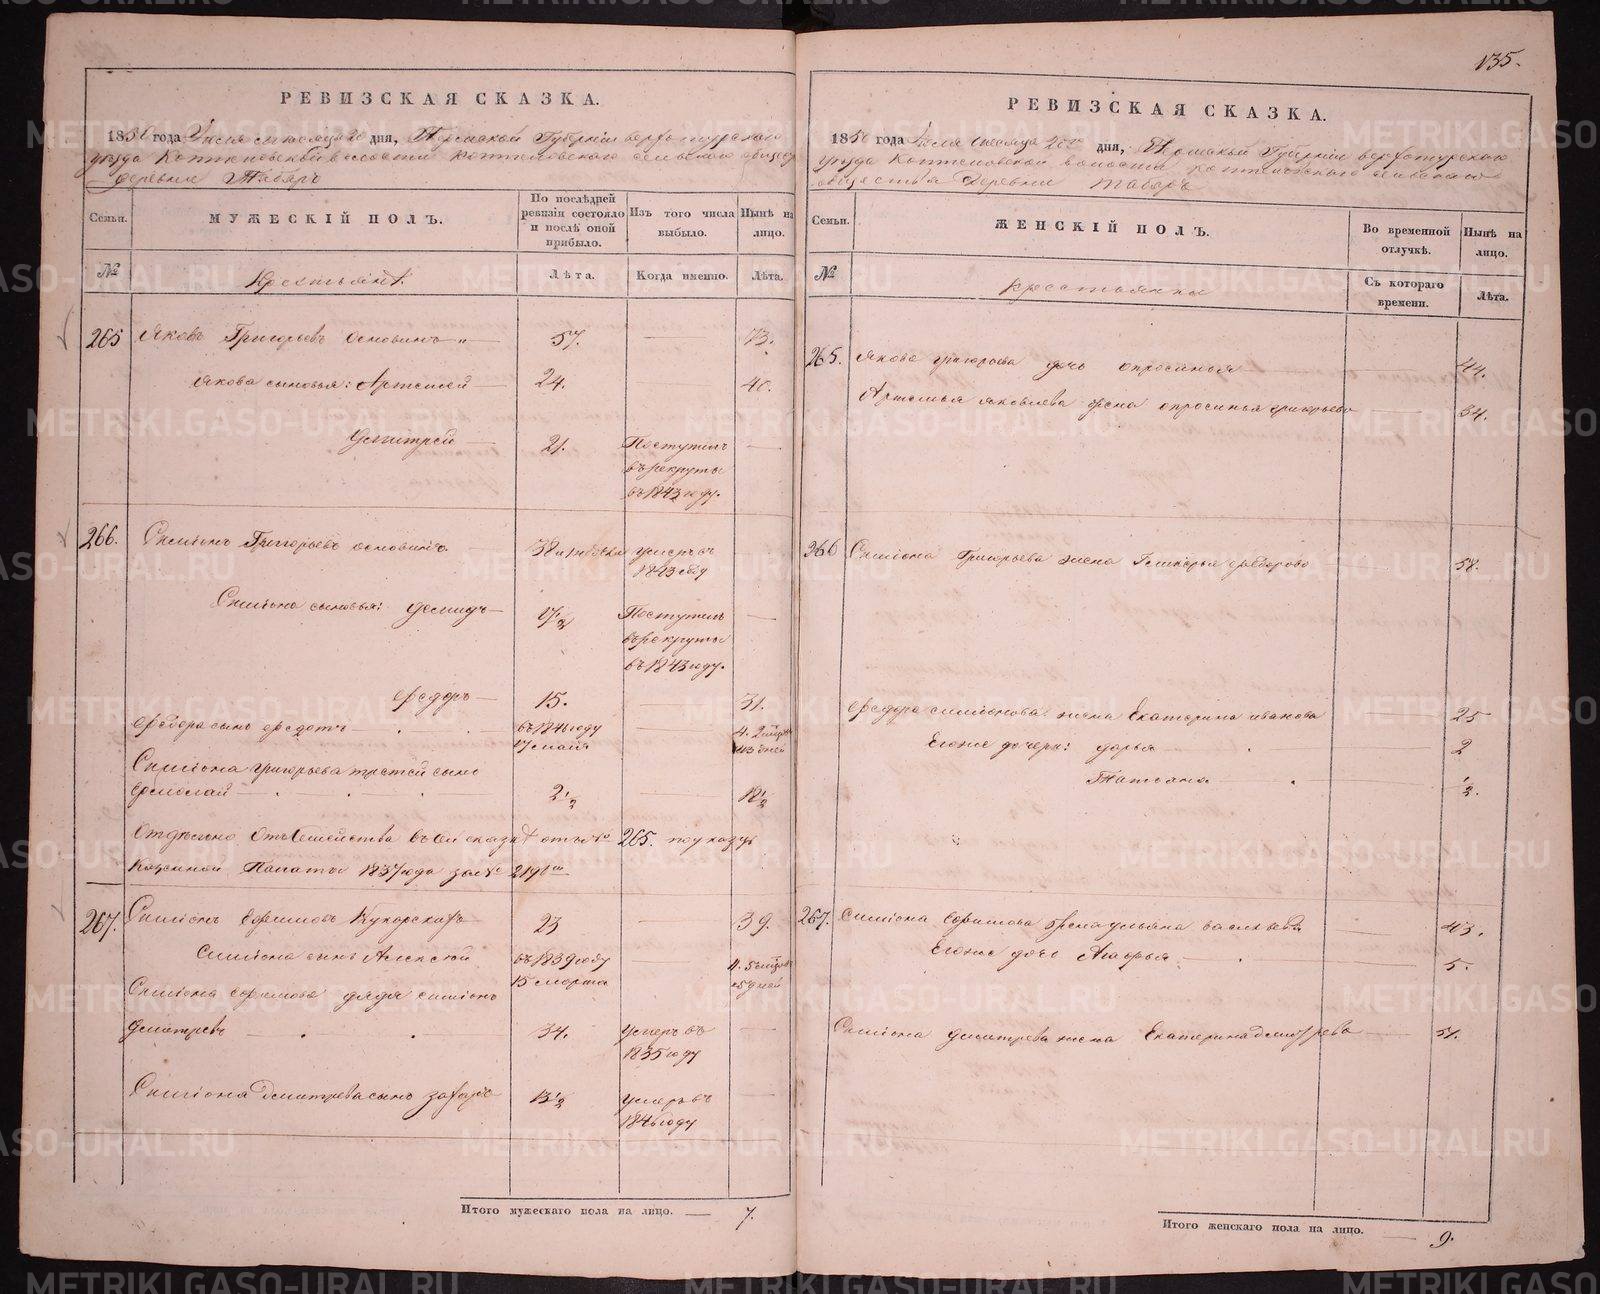 135.
РЕВИЗСКАЯ СКАЗКА.
1850 года Июля месяца 20 дня, Пермской Губернии верхотурскаго
уезда Коптеловской волости Коптеловского сельского общества
деревни Таборъ
Семьи.
МУЖЕСКІЙ ПОЛЪ.
По послѣдней ревизіи состояло и послѣ оной прибыло.
Изъ того числа выбыло.
Нынѣ на лицо.
№
Крестьяне.
Лѣта.
Когда именно.
Лѣта.
265 Яковъ Григорьевъ Основинъ 57. 73.
Якова сыновья: Артемей 24. 40.
Дмитрей 21. Поступилъ
въ рекруты
въ 1843 году.
266. Симіонъ Григорьевъ основинъ 38 умеръ въ
1843 году
Симіона сыновья: Демидъ 17 1/2 Поступилъ
въ рекруты
въ 1843 году.
Федоръ 15. 31.
Федора сынъ Федотъ въ 1846 году 4. 2
17 мая 13 дней
Симіона григорьева третей сынъ
Ермолай 2 1/2 18 1/2
Отдѣльно отъ Семейства въ сей сказкѣ отъ № 265. по указу
Казенной Палаты 1837 года за №
267. Симіонъ Ефимовъ Кукарскихъ 23 39.
Симіона сынъ Алексей въ 1839 году 11. 5
15 марта 5 дней
Симіона ефимова дядя симіонъ
Дмитревъ 34. умеръ въ
1835 году
Симіона Дмитрева сынъ захаръ 13 1/2 умеръ въ
1846 году
Итого мужескаго пола на лицо. 7.
РЕВИЗСКАЯ СКАЗКА.
1850 года Июля месяца 20 дня, Пермской Губернии верхотурскаго
уезда Коптеловской волости коптеловского сельскаго
общества деревни Таборъ
Семьи.
ЖЕНСКІЙ ПОЛЪ.
Во временной отлучкѣ.
Нынѣ на лицо.
№
крестьянки
Съ котораго времени.
Лѣта.
265. Якова григорьева дочь опросинья 44.
Артемья яковлева жена опросинья григорьева 34.
266 Симіона Григорьева жена Гликерья федорова 58.
Федора симіонова жена Екатерина иванова 25
Егоже дочери: дарья 2
Татьяна 1/2.
267. симіона Ефимова жена ульяна васильева 43.
Егоже дочь Агафья 5.
Симіона дмитрева жена Екатерина дмитрева 51.
Итого женскаго пола на лицо. 9.
METRIKI.GASO-URAL.RU